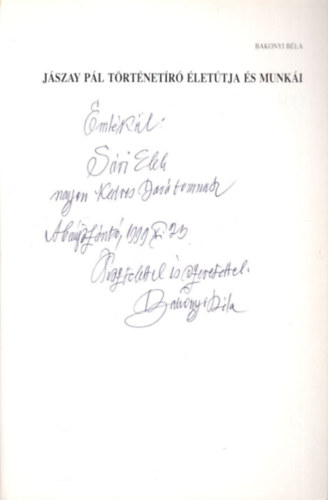 BAKONYI BÉLA
JÁSZAY PÁL TÖRTÉNETÍRÓ ÉLETÚTJA ÉS MUNKÁI
Emlékül:
Sári Elek
nagyon kedves barátomnak
Abaújszántó, 1999. XI. 29.
Tisztelettel és szeretettel.
Bakonyi Béla